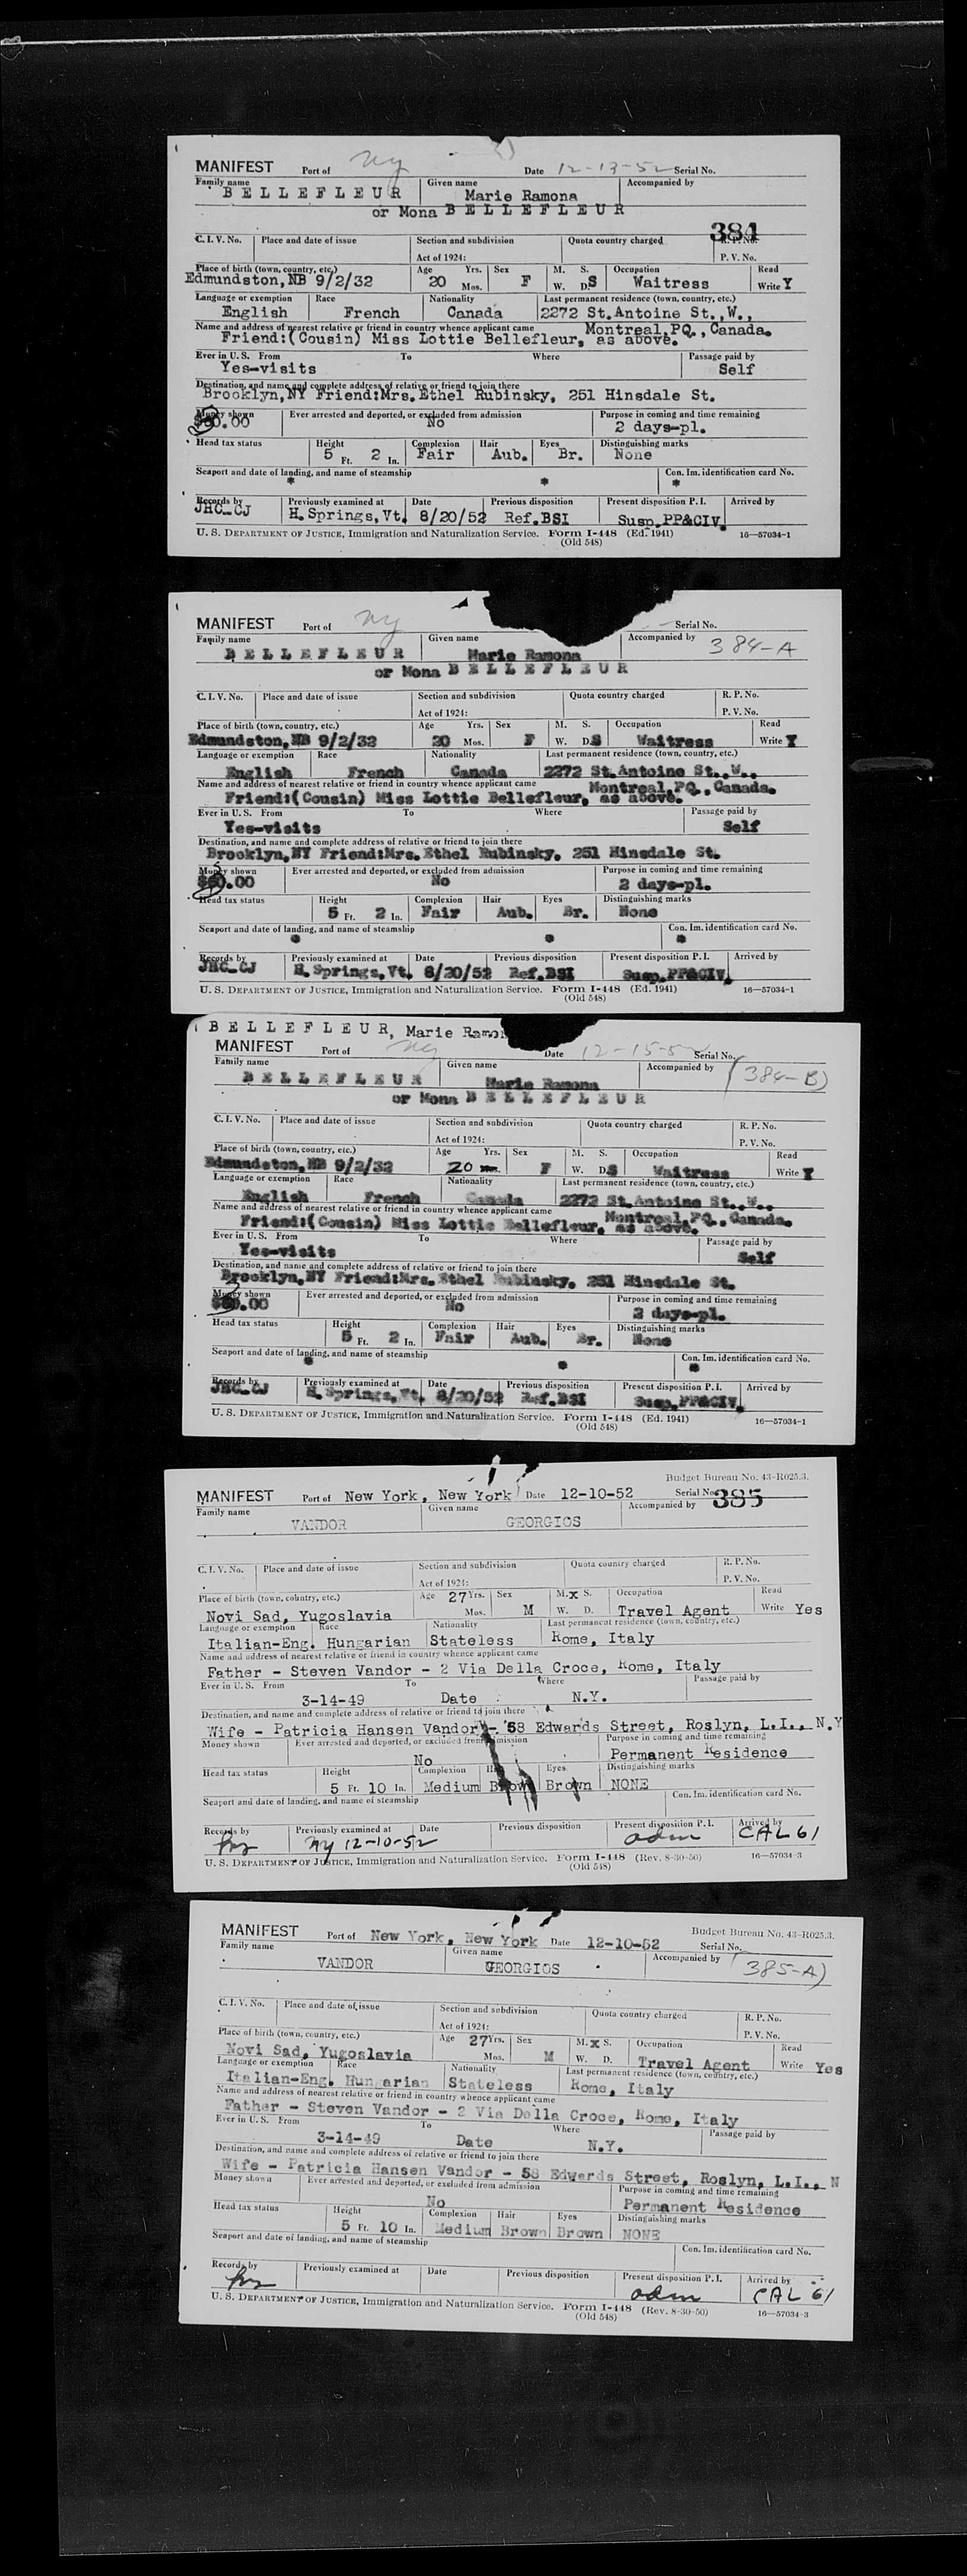 MANIFEST Port of ny Date 12-13-52 Serial No.
Family name Given name Accompanied by
BELLEFLEUR Marie Ramona
or Mona BELLEFLEUR
384
C. I. V. No. Place and date of issue Section and subdivision Quota country charged R. P. No.
Act of 1924: P. V. No.
Place of birth (town, country, etc.) Age Yrs. Sex M. S. Occupation Read
Edmundston, NB 9/2/32 20 Mos. F W. D. S Waitress Write Y
Language or exemption Race Nationality Last permanent residence (town, country, etc.)
English French Canada 2272 St. Antoine St., W.,
Name and address of nearest relative or friend in country whence applicant came Montreal, PQ., Canada.
Friend:(Cousin) Miss Lottie Bellefleur, as above.
Ever in U. S. From To Where Passage paid by
Yes-visits Self
Destination, and name and complete address of relative or friend to join there
Brooklyn, NY Friend:Mrs. Ethel Rubinsky, 251 Hinsdale St.
Money shown Ever arrested and deported, or excluded from admission Purpose in coming and time remaining
$60.00 No 2 days-pl.
Head tax status Height Complexion Hair Eyes Distinguishing marks
5 Ft. 2 In. Fair Aub. Br. None
Seaport and date of landing, and name of steamship Con. Im. identification card No.
* * *
Records by Previously examined at Date Previous disposition Present disposition P. I. Arrived by
JHC-CJ H. Springs, Vt. 8/20/52 Ref. BSI Susp. PP&CIV.
U. S. DEPARTMENT OF JUSTICE, Immigration and Naturalization Service. Form I-448 (Ed. 1941) 16—57034-1
(Old 548)
MANIFEST Port of ny Serial No.
Family name Given name Accompanied by 384-A
BELLEFLEUR Marie Ramona
or Mona BELLEFLEUR
C. I. V. No. Place and date of issue Section and subdivision Quota country charged R. P. No.
Act of 1924: P. V. No.
Place of birth (town, country, etc.) Age Yrs. Sex M. S. Occupation Read
Edmundston, NB 9/2/32 20 Mos. F W. D. S Waitress Write Y
Language or exemption Race Nationality Last permanent residence (town, country, etc.)
English French Canada 2272 St. Antoine St., W.,
Name and address of nearest relative or friend in country whence applicant came Montreal, PQ., Canada.
Friend:(Cousin) Miss Lottie Bellefleur, as above.
Ever in U. S. From To Where Passage paid by
Yes-visits Self
Destination, and name and complete address of relative or friend to join there
Brooklyn, NY Friend:Mrs. Ethel Rubinsky, 251 Hinsdale St.
Money shown Ever arrested and deported, or excluded from admission Purpose in coming and time remaining
$60.00 No 2 days-pl.
Head tax status Height Complexion Hair Eyes Distinguishing marks
5 Ft. 2 In. Fair Aub. Br. None
Seaport and date of landing, and name of steamship Con. Im. identification card No.
* * *
Records by Previously examined at Date Previous disposition Present disposition P. I. Arrived by
JHC-CJ H. Springs, Vt. 8/20/52 Ref. BSI Susp. PP&CIV.
U. S. DEPARTMENT OF JUSTICE, Immigration and Naturalization Service. Form I-448 (Ed. 1941) 16—57034-1
(Old 548)
BELLEFLEUR, Marie Ramon
MANIFEST Port of ny Date 12-15-52 Serial No.
Family name Given name Accompanied by (384-B)
BELLEFLEUR Marie Ramona
or Mona BELLEFLEUR
C. I. V. No. Place and date of issue Section and subdivision Quota country charged R. P. No.
Act of 1924: P. V. No.
Place of birth (town, country, etc.) Age Yrs. Sex M. S. Occupation Read
Edmundston, NB 9/2/32 20 F W. D. S Waitress Write Y
Language or exemption Race Nationality Last permanent residence (town, country, etc.)
English French Canada 2272 St. Antoine St., W.,
Name and address of nearest relative or friend in country whence applicant came Montreal, PQ., Canada.
Friend:(Cousin) Miss Lottie Bellefleur, as above.
Ever in U. S. From To Where Passage paid by
Yes-visits Self
Destination, and name and complete address of relative or friend to join there
Brooklyn, NY Friend:Mrs. Ethel Rubinsky, 251 Hinsdale St.
Money shown Ever arrested and deported, or excluded from admission Purpose in coming and time remaining
$60.00 No 2 days-pl.
Head tax status Height Complexion Hair Eyes Distinguishing marks
5 Ft. 2 In. Fair Aub. Br. None
Seaport and date of landing, and name of steamship Con. Im. identification card No.
* * *
Records by Previously examined at Date Previous disposition Present disposition P. I. Arrived by
JHC-CJ H. Springs, Vt. 8/20/52 Ref. BSI Susp. PP&CIV.
U. S. DEPARTMENT OF JUSTICE, Immigration and Naturalization Service. Form I-448 (Ed. 1941) 16—57034-1
(Old 548)
Budget Bureau No. 43-R025.3.
MANIFEST Port of New York, New York Date 12-10-52 Serial No. 385
Family name Given name Accompanied by
VANDOR GEORGIOS
C. I. V. No. Place and date of issue Section and subdivision Quota country charged R. P. No.
Act of 1924: P. V. No.
Place of birth (town, country, etc.) Age 27 Yrs. Sex M. X S. Occupation Read
Novi Sad, Yugoslavia Mos. M W. D. Travel Agent Write Yes
Language or exemption Race Nationality Last permanent residence (town, country, etc.)
Italian-Eng. Hungarian Stateless Rome, Italy
Name and address of nearest relative or friend in country whence applicant came
Father - Steven Vandor - 2 Via Della Croce, Rome, Italy
Ever in U. S. From To Where Passage paid by
3-14-49 Date N.Y.
Destination, and name and complete address of relative or friend to join there
Wife - Patricia Hansen Vandor - 58 Edwards Street, Roslyn, L.I., N.Y
Money shown Ever arrested and deported, or excluded from admission Purpose in coming and time remaining
No Permanent Residence
Head tax status Height Complexion Hair Eyes Distinguishing marks
5 Ft. 10 In. Medium Brown Brown NONE
Seaport and date of landing, and name of steamship Con. Im. identification card No.
Records by Previously examined at Date Previous disposition Present disposition P. I. Arrived by
ny 12-10-52 adm CAL 61
U. S. DEPARTMENT OF JUSTICE, Immigration and Naturalization Service. Form I-448 (Rev. 8-30-50) 16—57034-3
(Old 548)
Budget Bureau No. 43-R025.3.
MANIFEST Port of New York, New York Date 12-10-52 Serial No.
Family name Given name Accompanied by (385-A)
VANDOR GEORGIOS
C. I. V. No. Place and date of issue Section and subdivision Quota country charged R. P. No.
Act of 1924: P. V. No.
Place of birth (town, country, etc.) Age 27 Yrs. Sex M. X S. Occupation Read
Novi Sad, Yugoslavia Mos. M W. D. Travel Agent Write Yes
Language or exemption Race Nationality Last permanent residence (town, country, etc.)
Italian-Eng. Hungarian Stateless Rome, Italy
Name and address of nearest relative or friend in country whence applicant came
Father - Steven Vandor - 2 Via Della Croce, Rome, Italy
Ever in U. S. From To Where Passage paid by
3-14-49 Date N.Y.
Destination, and name and complete address of relative or friend to join there
Wife - Patricia Hansen Vandor - 58 Edwards Street, Roslyn, L.I., N
Money shown Ever arrested and deported, or excluded from admission Purpose in coming and time remaining
No Permanent Residence
Head tax status Height Complexion Hair Eyes Distinguishing marks
5 Ft. 10 In. Medium Brown Brown NONE
Seaport and date of landing, and name of steamship Con. Im. identification card No.
Records by Previously examined at Date Previous disposition Present disposition P. I. Arrived by
adm CAL 61
U. S. DEPARTMENT OF JUSTICE, Immigration and Naturalization Service. Form I-448 (Rev. 8-30-50) 16—57034-3
(Old 548)